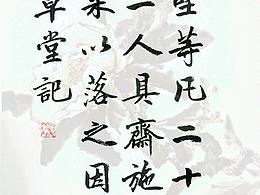 堅等凡二十
一人具齋施
果以落之因
草堂記